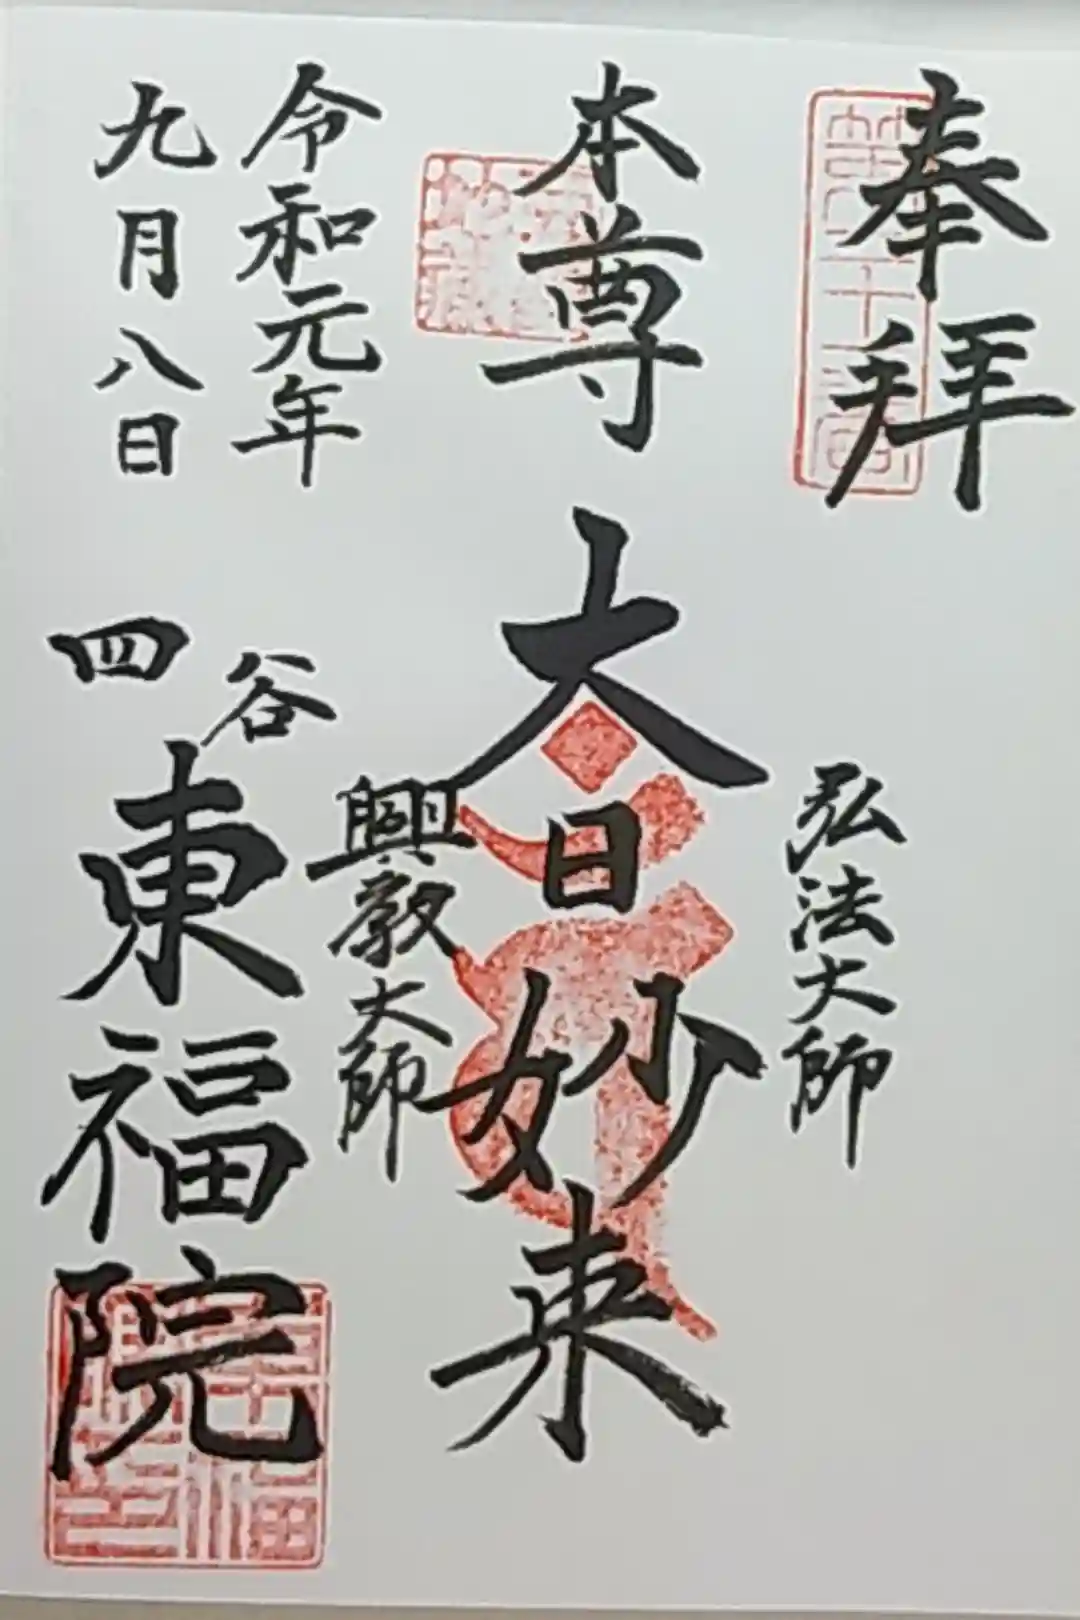 奉拝
弘法大師
本尊
大日妙来
興教大師
令和元年
九月八日
四谷
東福院